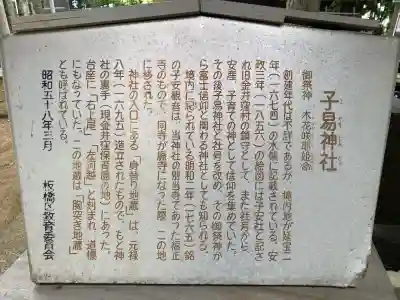 子易神社
御祭神 木花咲耶姫命
創建年代は不詳であるが、境内地が延宝二
年(一六七四)の水帳に記載されている。安
政三年(一八五六)の絵図には子安社と記さ
れ旧金井窪村の鎮守として、また社号から、
安産、子育ての神として信仰を集めていた。
その後子易神社と社号を改め、その御祭神か
ら富士信仰と関わる神社としても知られる。
境内に祀られている明和二年(一七六五)銘
の子安観音は、当神社の別当寺であった福正
寺のもので、同寺が廃寺になった際、この地
に移された。
神社の入口にある「身替り地蔵」は、元禄
八年(一六九五)造立されたもので、もと神
社の裏手(現金井窪保育園の地)にあった。
台座に「右上尾」、「左川越」と刻まれ、道標
にもなっていた。この地蔵は「胸突き地蔵」
とも呼ばれている。
昭和五十八年三月
板橋区教育委員会